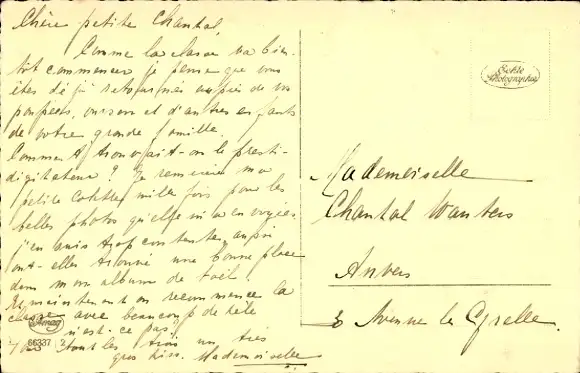 Chère petite Chantal,
Comme la classe va bien-
tôt commencer je pense que vous
êtes déjà retournés auprès de vos
poupées, ourson et d'autres enfants
de votre grande famille.
Comment trouvait-on le presti-
digitateur? Je remercie ma
petite Colette mille fois pour les
belles photos qu'elle m'a envoyées
j'en suis trop contente, aussi
ont-elles trouvé une bonne place
dans mon album de toil.
Et maintenant on recommence la
classe avec beaucoup de zèle
n'est-ce pas.
tous les trois un très
gros kiss. Mademoiselle
Amag
66337
Echte
Photographie
Mademoiselle
Chantal Wauters
Anvers
Avenue le Grelle.